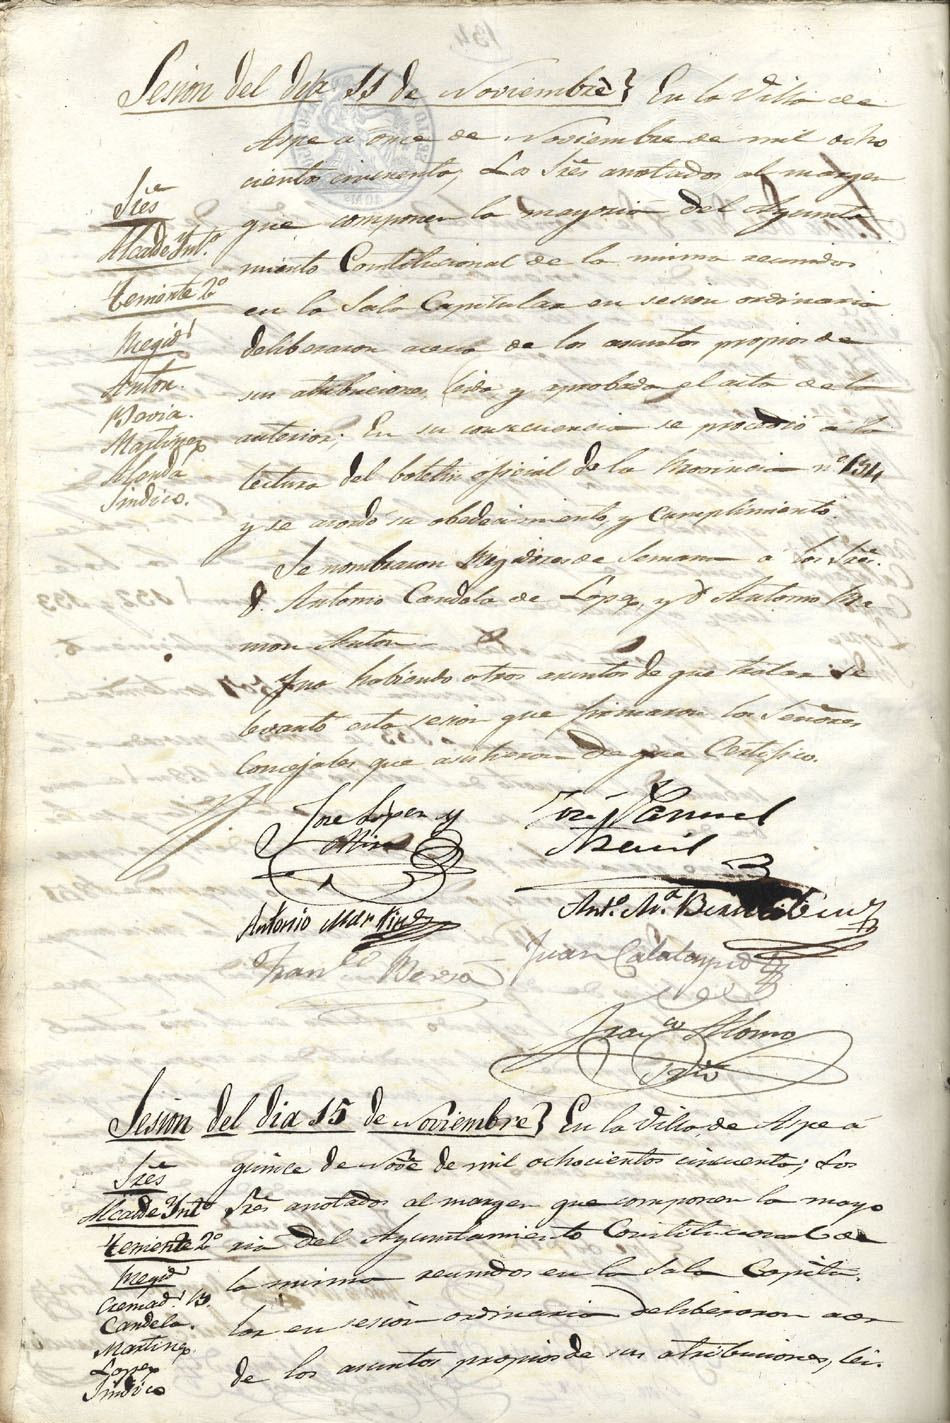 Sesion del dia 11 de Noviembre} En la Villa de
Aspe a once de Noviembre de mil ocho
cientos cincuenta; Los Sres anotados al margen
que componen la mayoria del Ayunta
miento Constitucional de la misma reunidos
en la Sala Capitular en sesion ordinaria
deliberaron acerca de los asuntos propios de
sus atribuciones, leida y aprobada el acta de la
anterior. En su consecuencia se procedió a la
lectura del boletin oficial de la Provincia nº 134
y se acordó su obedecimiento y cumplimiento.
Se nombraron Regidores de Semana a los Sres.
D. Antonio Candela de Lopez, y D. Antonio Ra-
mon Anton
Y no habiendo otros asuntos de que tratar se
levantó esta sesion que firmaron los Señores
Concejales que asistieron de que Certifico.
Sres
Alcalde Ynto.
teniente 2º
Regids
Anton.
Bovia.
Martinez
Sindico.
Jose Lopez y
José Manuel
Antonio Martinez
Anto. Ma.
Juan Calatayud
Franco
Franco Alonso
Srio
Sesion del dia 15 de Noviembre} En la Villa de Aspe á
quince de Nove de mil ochocientos cincuenta; Los
Sres anotados al margen que componen la mayo
ria del Ayuntamiento Constitucional de
la misma reunidos en la Sala Capitu-
lar en sesion ordinaria deliberaron acer
de los asuntos propios de sus atribuciones, lei-
Sres
Alcalde Ynto
teniente 2º
Regids
Cremads. B.
Candela.
Martinez
Lopez
Sindico